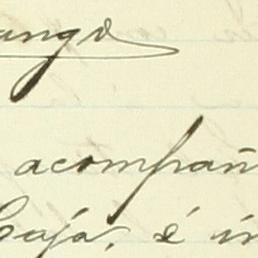 ango
acompañ
Caja, é in